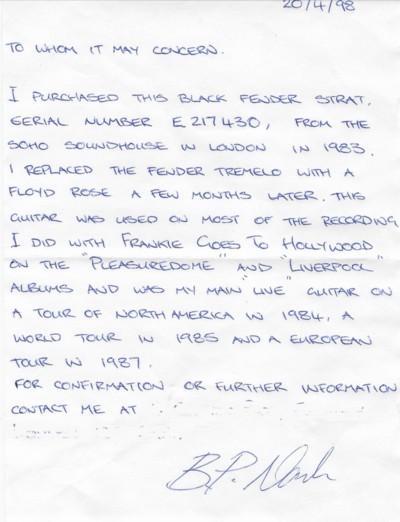 20/4/98
TO WHOM IT MAY CONCERN.
I PURCHASED THIS BLACK FENDER STRAT,
SERIAL NUMBER E217430, FROM THE
SOHO SOUNDHOUSE IN LONDON IN 1983.
I REPLACED THE FENDER TREMELO WITH A
FLOYD ROSE A FEW MONTHS LATER. THIS
GUITAR WAS USED ON MOST OF THE RECORDING
I DID WITH FRANKIE GOES TO HOLLYWOOD
ON THE "PLEASUREDOME" AND "LIVERPOOL"
ALBUMS AND WAS MY MAIN "LIVE" GUITAR ON
A TOUR OF NORTH AMERICA IN 1984, A
WORLD TOUR IN 1985 AND A EUROPEAN
TOUR IN 1987.
FOR CONFIRMATION OR FURTHER INFORMATION
CONTACT ME AT
B.P. Nash